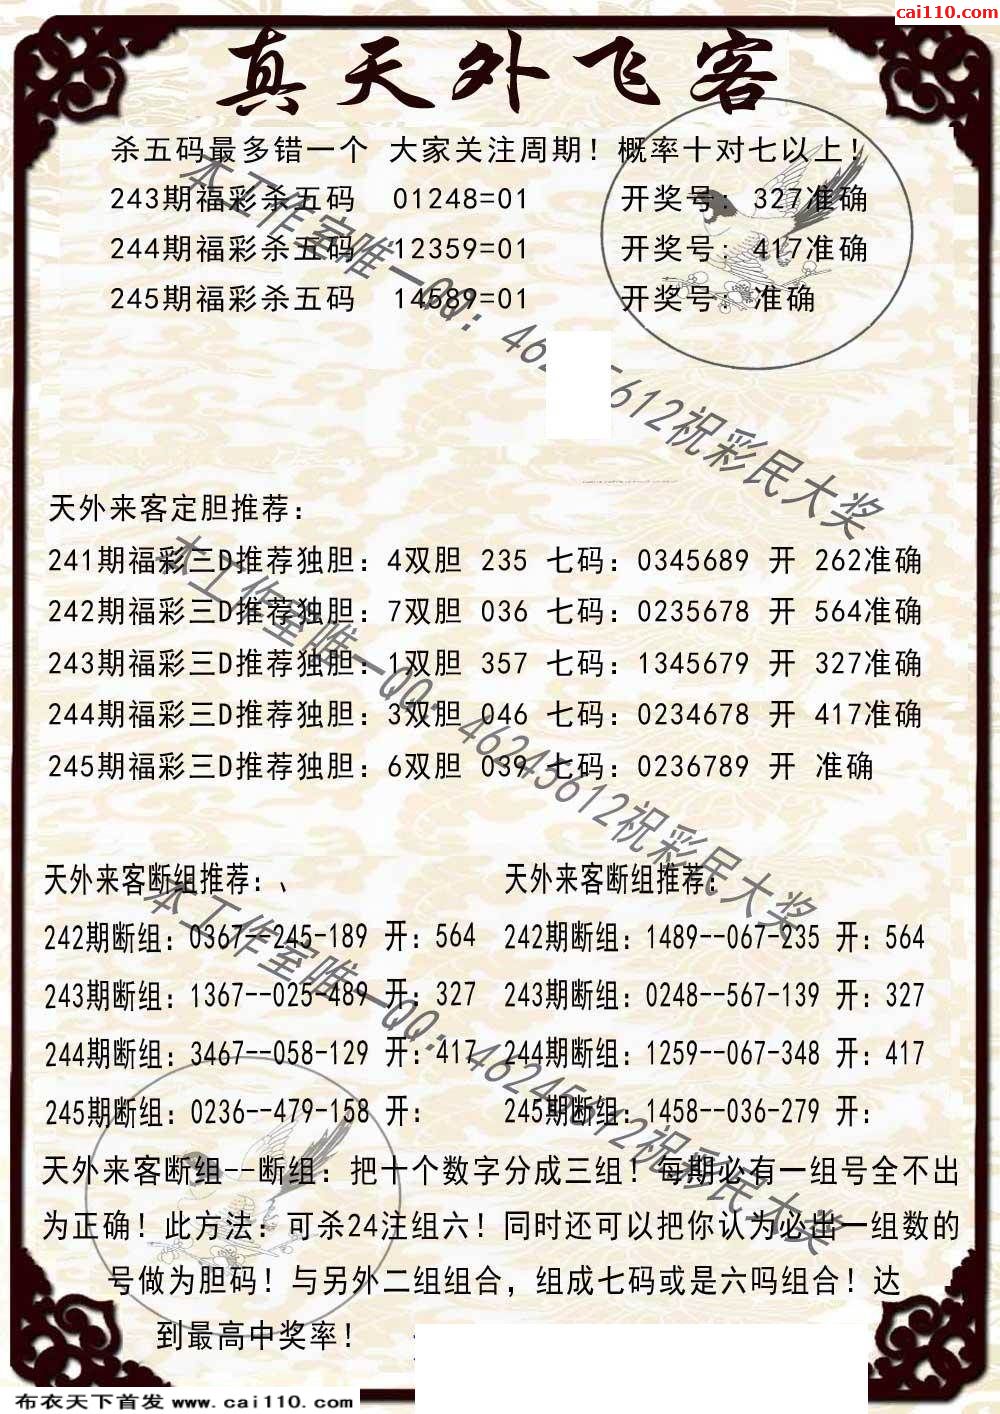 cai110.com
真天外飞客
杀五码最多错一个 大家关注周期！概率十对七以上！
243期福彩杀五码 01248=01 开奖号：327准确
244期福彩杀五码 12359=01 开奖号：417准确
245期福彩杀五码 14589=01 开奖号：准确
本工作室唯一QQ：462 5612祝彩民大奖
天外来客定胆推荐：
241期福彩三D推荐独胆：4双胆 235 七码：0345689 开 262准确
242期福彩三D推荐独胆：7双胆 036 七码：0235678 开 564准确
243期福彩三D推荐独胆：1双胆 357 七码：1345679 开 327准确
244期福彩三D推荐独胆：3双胆 046 七码：0234678 开 417准确
245期福彩三D推荐独胆：6双胆 039 七码：0236789 开 准确
本工作室唯一QQ：46245612祝彩民大奖
天外来客断组推荐：、 天外来客断组推荐：
242期断组：0367--245-189 开：564 242期断组：1489--067-235 开：564
243期断组：1367--025-489 开：327 243期断组：0248--567-139 开：327
244期断组：3467--058-129 开：417 244期断组：1259--067-348 开：417
245期断组：0236--479-158 开： 245期断组：1458--036-279 开：
本工作室唯一QQ：46245612祝彩民大奖
天外来客断组--断组：把十个数字分成三组！每期必有一组号全不出
为正确！此方法：可杀24注组六！同时还可以把你认为必出一组数的
号做为胆码！与另外二组组合，组成七码或是六吗组合！达
到最高中奖率！
布衣天下首发 www.cai110.com